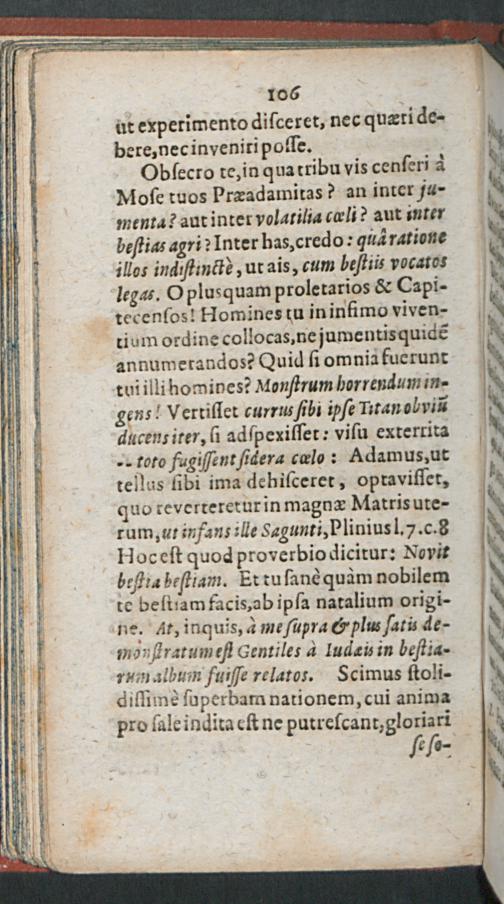 106
ut experimento diſceret, nec quæri de-
bere, nec inveniri poſſe.
Obſecro te, in qua tribu vis cenſeri à
Moſe tuos Præadamitas? an inter ju-
menta? aut inter volatilia cæli? aut inter
beſtias agri? Inter has, credo: quâ ratione
illos indiſtinctè, ut ais, cum beſtiis vocatos
legas. O plusquam proletarios & Capi-
tecenſos! Homines tu in infimo viven-
tium ordine collocas, ne jumentis quidē
annumerandos? Quid ſi omnia fuerunt
tui illi homines? Monſtrum horrendum in-
gens! Vertiſſet currus ſibi ipſe Titan obviū
ducens iter, ſi adſpexiſſet: viſu exterrita
-- toto fugiſſent ſidera cœlo: Adamus, ut
tellus ſibi ima dehiſceret, optaviſſet,
quo reverteretur in magnæ Matris ute-
rum, ut infans ille Sagunti, Plinius l. 7. c. 8
Hoc eſt quod proverbio dicitur: Novit
beſtia beſtiam. Et tu ſanè quàm nobilem
te beſtiam facis, ab ipſa natalium origi-
ne. At, inquis, à me ſupra & plus ſatis de-
monſtratum eſt Gentiles à Iudæis in beſtia-
rum album fuiſſe relatos. Scimus ſtoli-
diſſimè ſuperbam nationem, cui anima
pro ſale indita eſt ne putreſcant, gloriari
ſe ſo-